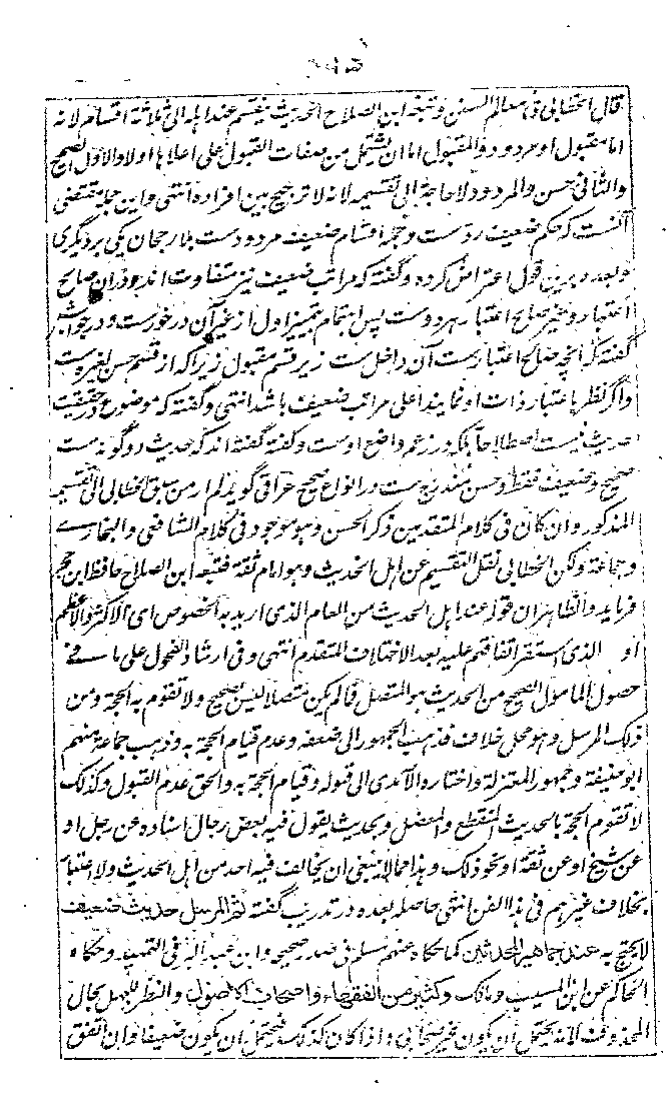 قال الخطابی فی معالم السنن وتبعه ابن الصلاح الحدیث ینقسم عند اهله الی ثلاثة اقسام لانه
اما مقبول او مردود والمقبول اما ان یشتمل من صفات القبول علی اعلاها اولا والاول الصحیح
والثانی حسن والمردود لا حاجة الی تقسیمه لانه لا ترجیح بین افراده انتهی واین جمله مقتضی
آنست که حکم ضعیف رد ست وجمله اقسام ضعیف مردودست بلا رجحان یکی بر دیگری
وبعده برین قول اعتراض کرده وگفته که مراتب ضعیف نیز متفاوت اند بودن صالح
اعتبار وغیر صالح اعتبار پس اهتمام بتمییز اول از غیر آن در خورست ودر جوابش
گفته که انچه صالح اعتبارست آن داخل ست زیر قسم مقبول زیرا که از قسم حسن لغیره ست
واگر نظر باعتبار ذات او نمایند اعلی مراتب ضعیف باشد انتهی وگفته که موضوع در حقیقت
حدیث نیست اصطلاحا بلکه در زعم واضع اوست وگفته اند که حدیث دو گونه ست
صحیح وضعیف فقط وحسن مندرج ست در انواع صحیح عراقی گوید لم ار من سبق الخطابی الی التقسیم
المذکور وان کان فی کلام المتقدمین ذکر الحسن وهو موجود فی کلام الشافعی والبخاری
وجماعة ولکن الخطابی نقل التقسیم عن اهل الحدیث وهو امام ثقة فتبعه ابن الصلاح حافظ ابن حجر
فرماید والظاهر ان قوله عند اهل الحدیث من العام الذی ارید به الخصوص ای الاکثر والاعظم
او الذی استقر اتفاقهم علیه بعد الاختلاف المتقدم انتهی وفی ارشاد الفحول علی ما فی
حصول المامول الصحیح من الحدیث هو المتصل فما لم یکن متصلا لیس بصحیح ولا تقوم به الحجة ومن
ذلک المرسل وهو محل خلاف فذهب الجمهور الی ضعفه وعدم قیام الحجة به وذهب جماعة منهم
ابو حنیفة وجمهور المعتزلة واختاره الآمدی الی قبوله وقیام الحجة به والحق عدم القبول وکذلک
لا تقوم الحجة بالحدیث المنقطع والمعضل وبحدیث یقول فیه بعض رجال اسناده عن رجل او
عن شیخ او عن ثقة او نحو ذلک وهذا مما لا ینبغی ان یخالف فیه احد من اهل الحدیث ولا اعتبار
بخلاف غیرهم فی هذا الفن انتهی حاصله بعده در تدریب گفته ثم المرسل حدیث ضعیف
لا یحتج به عند جماهیر المحدثین کما حکاه عنهم مسلم فی صدر صحیحه وابن عبد البر فی التمهید وحکاه
الحاکم عن ابن المسیب ومالک وکثیر من الفقهاء واصحاب الاصول والنظر للجهل بحال
المحذوف لانه یحتمل ان یکون غیر صحابی واذا کان کذلک فیحتمل ان یکون ضعیفا وان اتفق